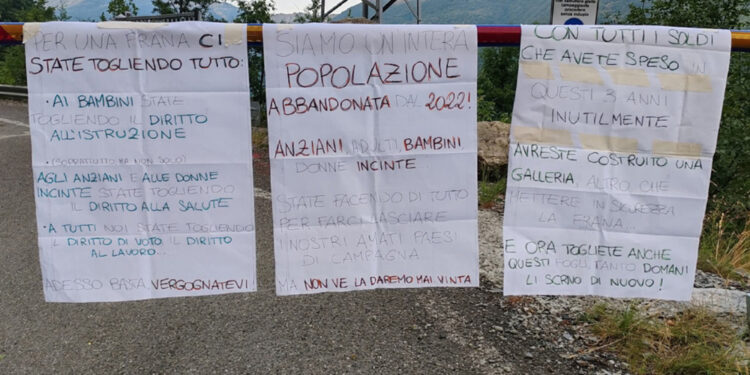 PER UNA FRANA CI
STATE TOGLIENDO TUTTO:
• AI BAMBINI STATE
TOGLIENDO IL DIRITTO
ALL'ISTRUZIONE
(SOPRATTUTTO MA NON SOLO)
AGLI ANZIANI E ALLE DONNE
INCINTE STATE TOGLIENDO
IL DIRITTO ALLA SALUTE
• A TUTTI NOI STATE TOGLIENDO
IL DIRITTO DI VOTO, IL DIRITTO
AL LAVORO...
ADESSO BASTA VERGOGNATEVI
SIAMO UN'INTERA
POPOLAZIONE
ABBANDONATA DAL 2022!
ANZIANI, ADULTI, BAMBINI,
DONNE INCINTE
STATE FACENDO DI TUTTO
PER FARCI LASCIARE
I NOSTRI AMATI PAESI
DI CAMPAGNA
MA NON VE LA DAREMO MAI VINTA
CON TUTTI I SOLDI
CHE AVETE SPESO IN
QUESTI 3 ANNI
INUTILMENTE
AVRESTE COSTRUITO UNA
GALLERIA, ALTRO CHE
METTERE IN SICUREZZA
LA FRANA...
E ORA TOGLIETE ANCHE
QUESTI FOGLI, TANTO DOMANI
LI SCRIVO DI NUOVO!